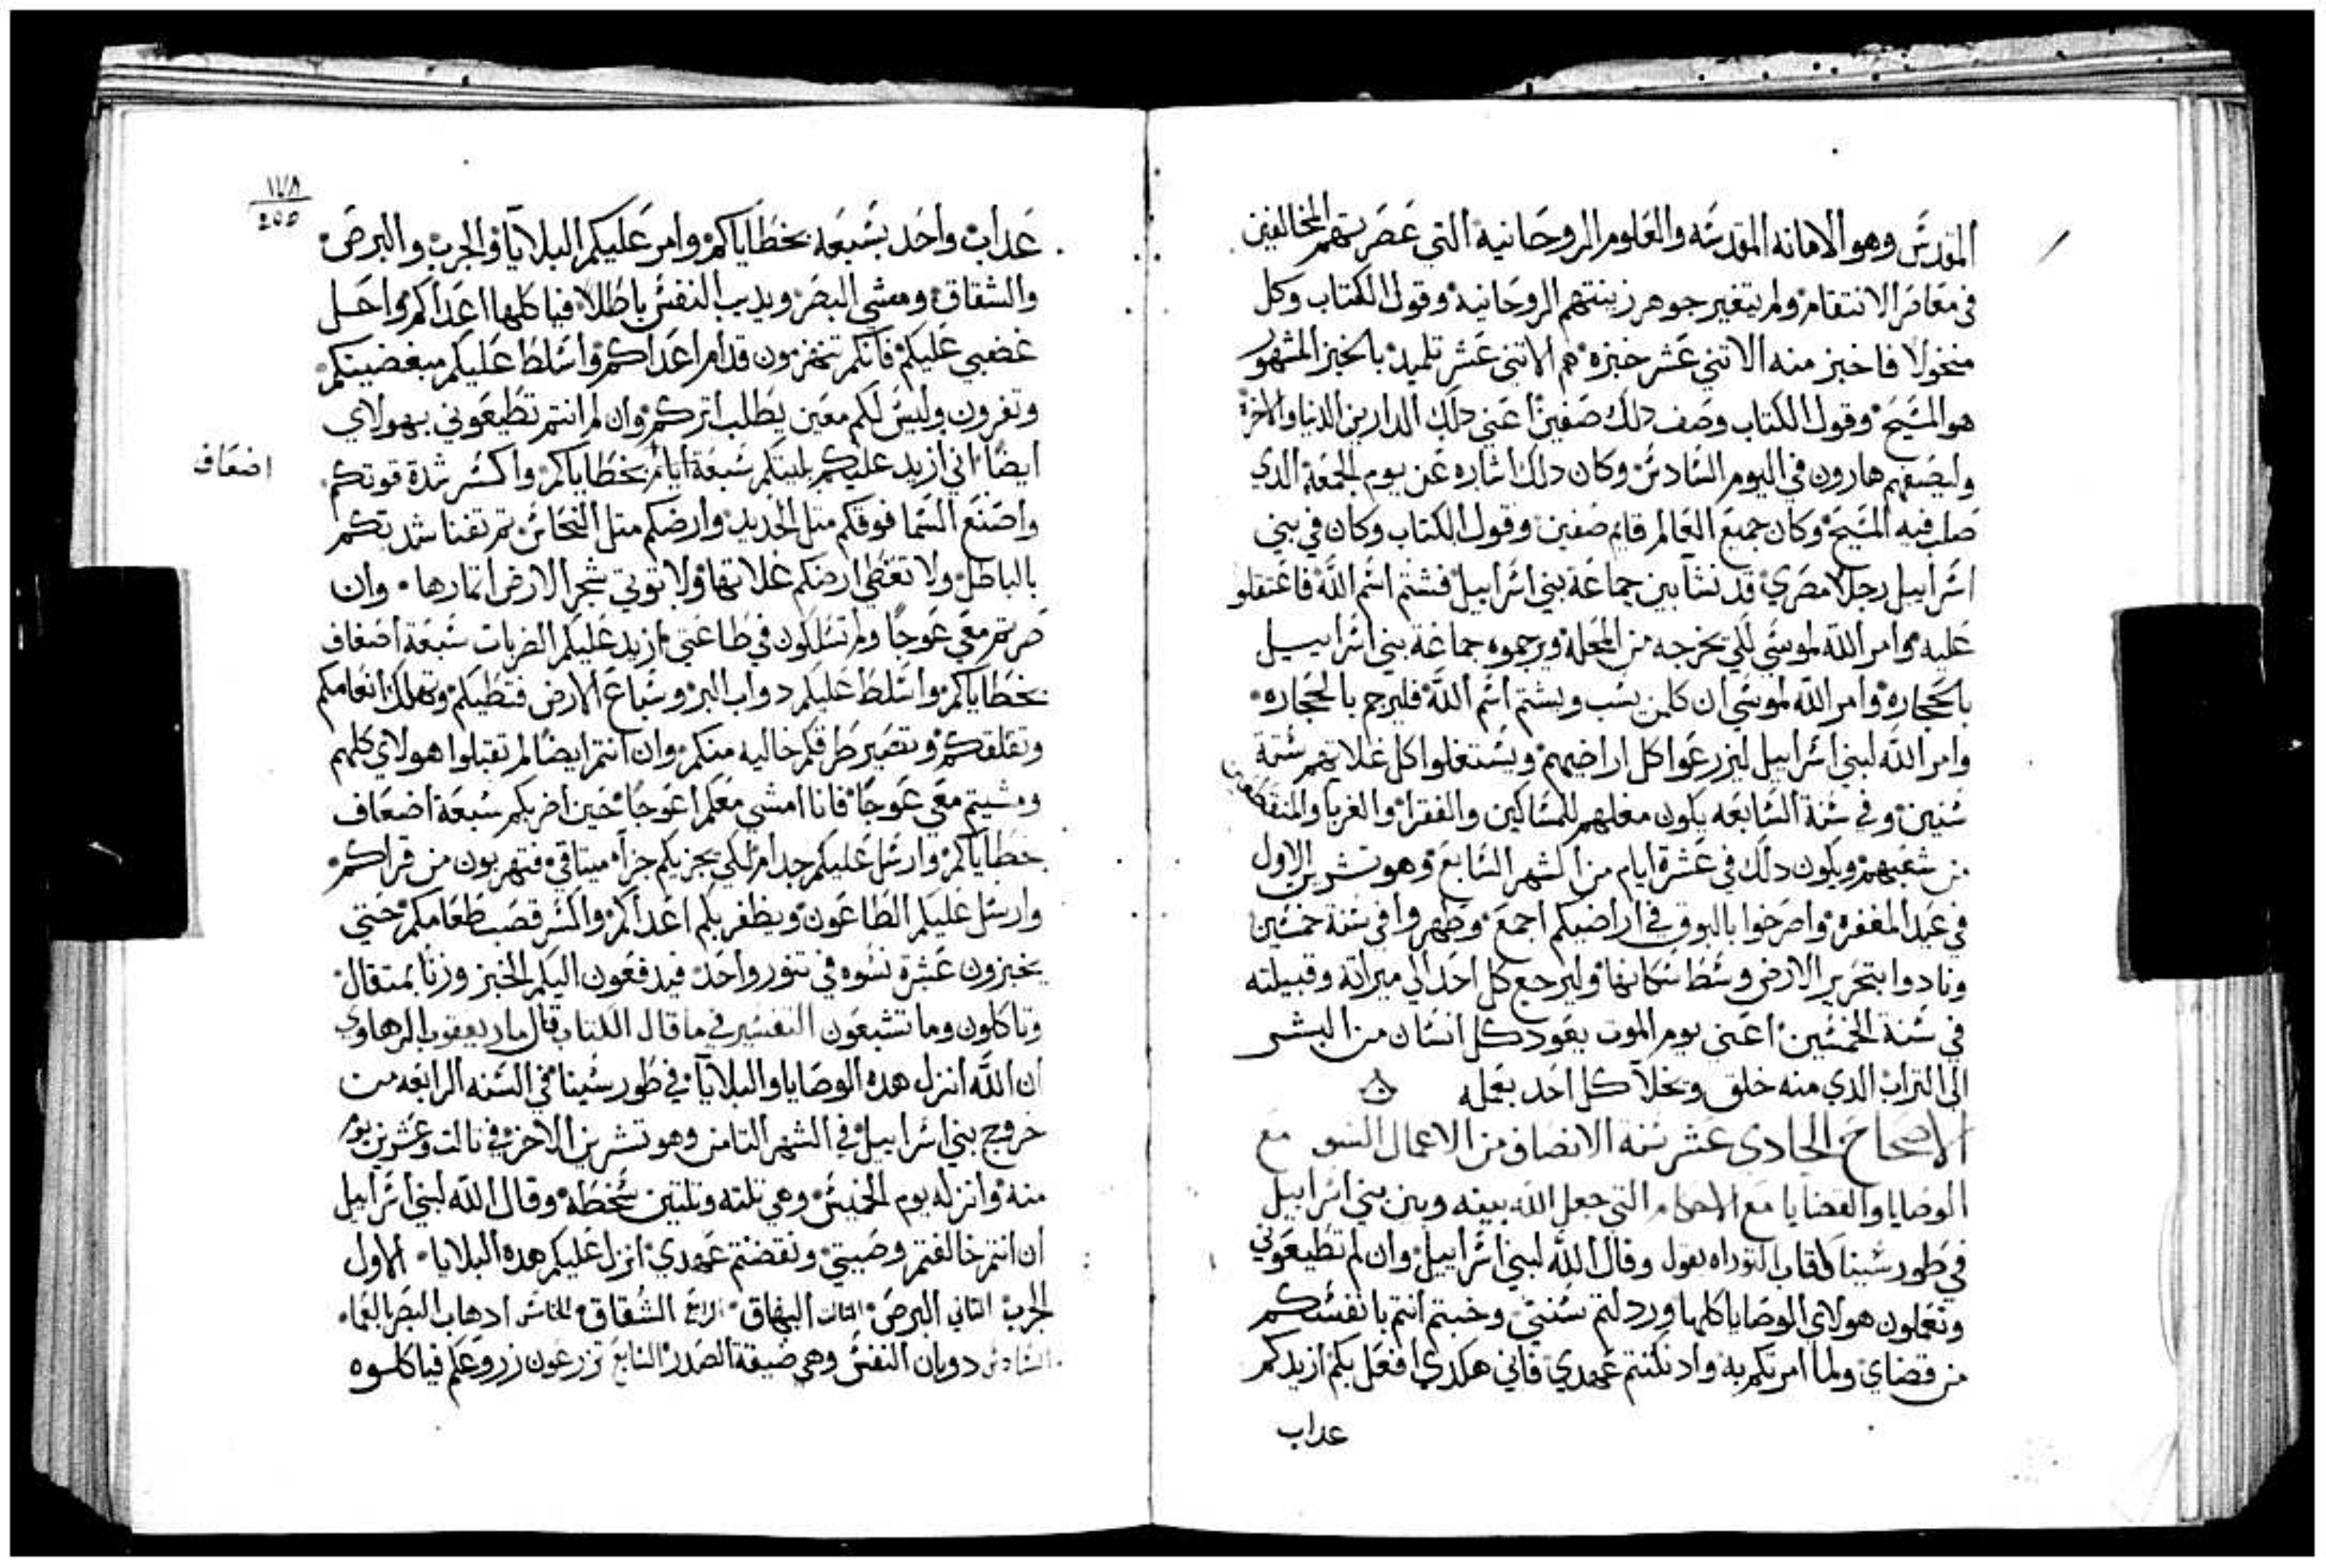 المقدس وهو الامانه المقدسه والعلوم الروحانية التي عصر بتهم المخالفين
في معاصر الانتقام ولم يتغير جوهر زينتهم الروحانية وقول الكتاب وكل
منخولا فاخبز منه الاتني عشر خبزه هم الاتني عشر تلميد بالخبز المشهور
هو المسيح وقول الكتاب وصف دلك صفين اعني دلك الدارين الدنيا والاخرة
وليصفهم هارون في اليوم السادس وكان دلك اشاره عن يوم الجمعة الدي
صلب فيه المسيح وكان جميع العالم قايم صفين وقول الكتاب وكان في بني
اسراييل رجلا مصري قد نشا بين جماعة بني اسراييل فشتم اسم الله فاعتقلو
عليه وامر الله لموسي لكي يخرجه من المحلة ويرجموه جماعة بني اسراييل
بالحجاره وامر الله لموسي ان كلمن يسب ويشتم اسم الله فليرجم بالحجاره
وامر الله لبني اسراييل ليزرعوا كل اراضيهم ويستغلوا كل غلاتهم ستة
سنين وفي سنة السابعه يكون مغلهم للمساكين والفقرا والغربا والمنقطعين
من شعبهم ويكون دلك في عشرة ايام من الشهر السابع وهو تشرين الاول
في عيد المغفره واصرخوا بالبوق في اراضيكم اجمع وطهروا في سنة خمسين
ونادوا بتحرير الارض وسط سكانها وليرجع كل احد الي ميراته وقبيلته
في سنة الخمسين اعني يوم الموت يعود كل انسان من البشر
الى التراب الدي منه خلق ويخلا كل احد بعمله
الاصحاح الحادي عشر سنه الانصاف من الاعمال السو مع
الوصايا والقضايا مع الاحكام التي جعل الله بينه وبين بني اسراييل
في طور سينا كتاب التوراه يقول وقال الله لبني اسراييل وان لم تطيعوني
وتعملون هولاي الوصايا كلها وردلتم سنتي وخبتم انتم بانفسكم
من قضاي ولما امرتكم به واد نكتتم عهدي فاني هكدي افعل بكم ازيدكم
عداب
١٧٨
205
عداب واحد بسبعه بخطاياكم وامر عليكم البلايا والجرب والبرص
والشقاق ومعشي البصر ويديب النفس باطلا فياكلها اعداكم واحل
غضبي عليكم فانكم تنخزون قدام اعداكم واسلط عليكم مبغضينكم
وتفرون وليس لكم معين يطلب اتركم وان لم انتم تطيعوني بهولاي
ايضا اني ازيد عليكم بليتكم سبعة ايام بخطاياكم واكسر شدة قوتكم
اضعاف
واصنع السما فوقكم متل الحديد وارضكم متل النحاس تم تفنا شدتكم
بالباطل ولا تعطي ارضكم غلاتها ولا توتي شجر الارض اتمارها وان
صرتم معي عوجا ولم تسلكون في طاعتي ازيد عليكم الضربات سبعة اضعاف
بخطاياكم واسلط عليكم دواب البر وسباع الارض فتطيكم وتهلك انعامكم
وتقلقكم وتصير طرقكم خاليه منكم وان انتم ايضا لم تقبلوا هولاي كلهم
ومشيتم معي عوجا فانا امشي معكم اعوجا حين اضربكم سبعة اضعاف
بخطاياكم وارسل عليكم جدام لكي يجزيكم جزا ميتاقي فتهربون من قراكم
وارسل عليكم الطاعون ويظفر بكم اعداكم واكسر قصب طعامكم حتي
يخبزون عشرة نسوه في تنور واحد فيدفعون اليكم الخبز وزنا بمتقال
وتاكلون وما تشبعون التفسير في ما قال الكتاب قال مار يعقوب الرهاوي
ان الله انزل هده الوصايا والبلايا في طور سينا في السنه الرابعه من
خروج بني اسراييل في الشهر التامن وهو تشرين الاخر في تالت وعشرين يوم
منه وانزله يوم الخميس وهي تلته وتلتين سخطة وقال الله لبني اسراييل
ان انتم خالفتم وصيتي ونقضتم عهدي انزل عليكم هده البلايا الاول
الجرب التاني البرص التالت البهاق الرابع الشقاق الخامس ادهاب البصر بالعماء
السادس دوبان النفس وهي ضيقة الصدر السابع تزرعون زروعكم فياكلوه